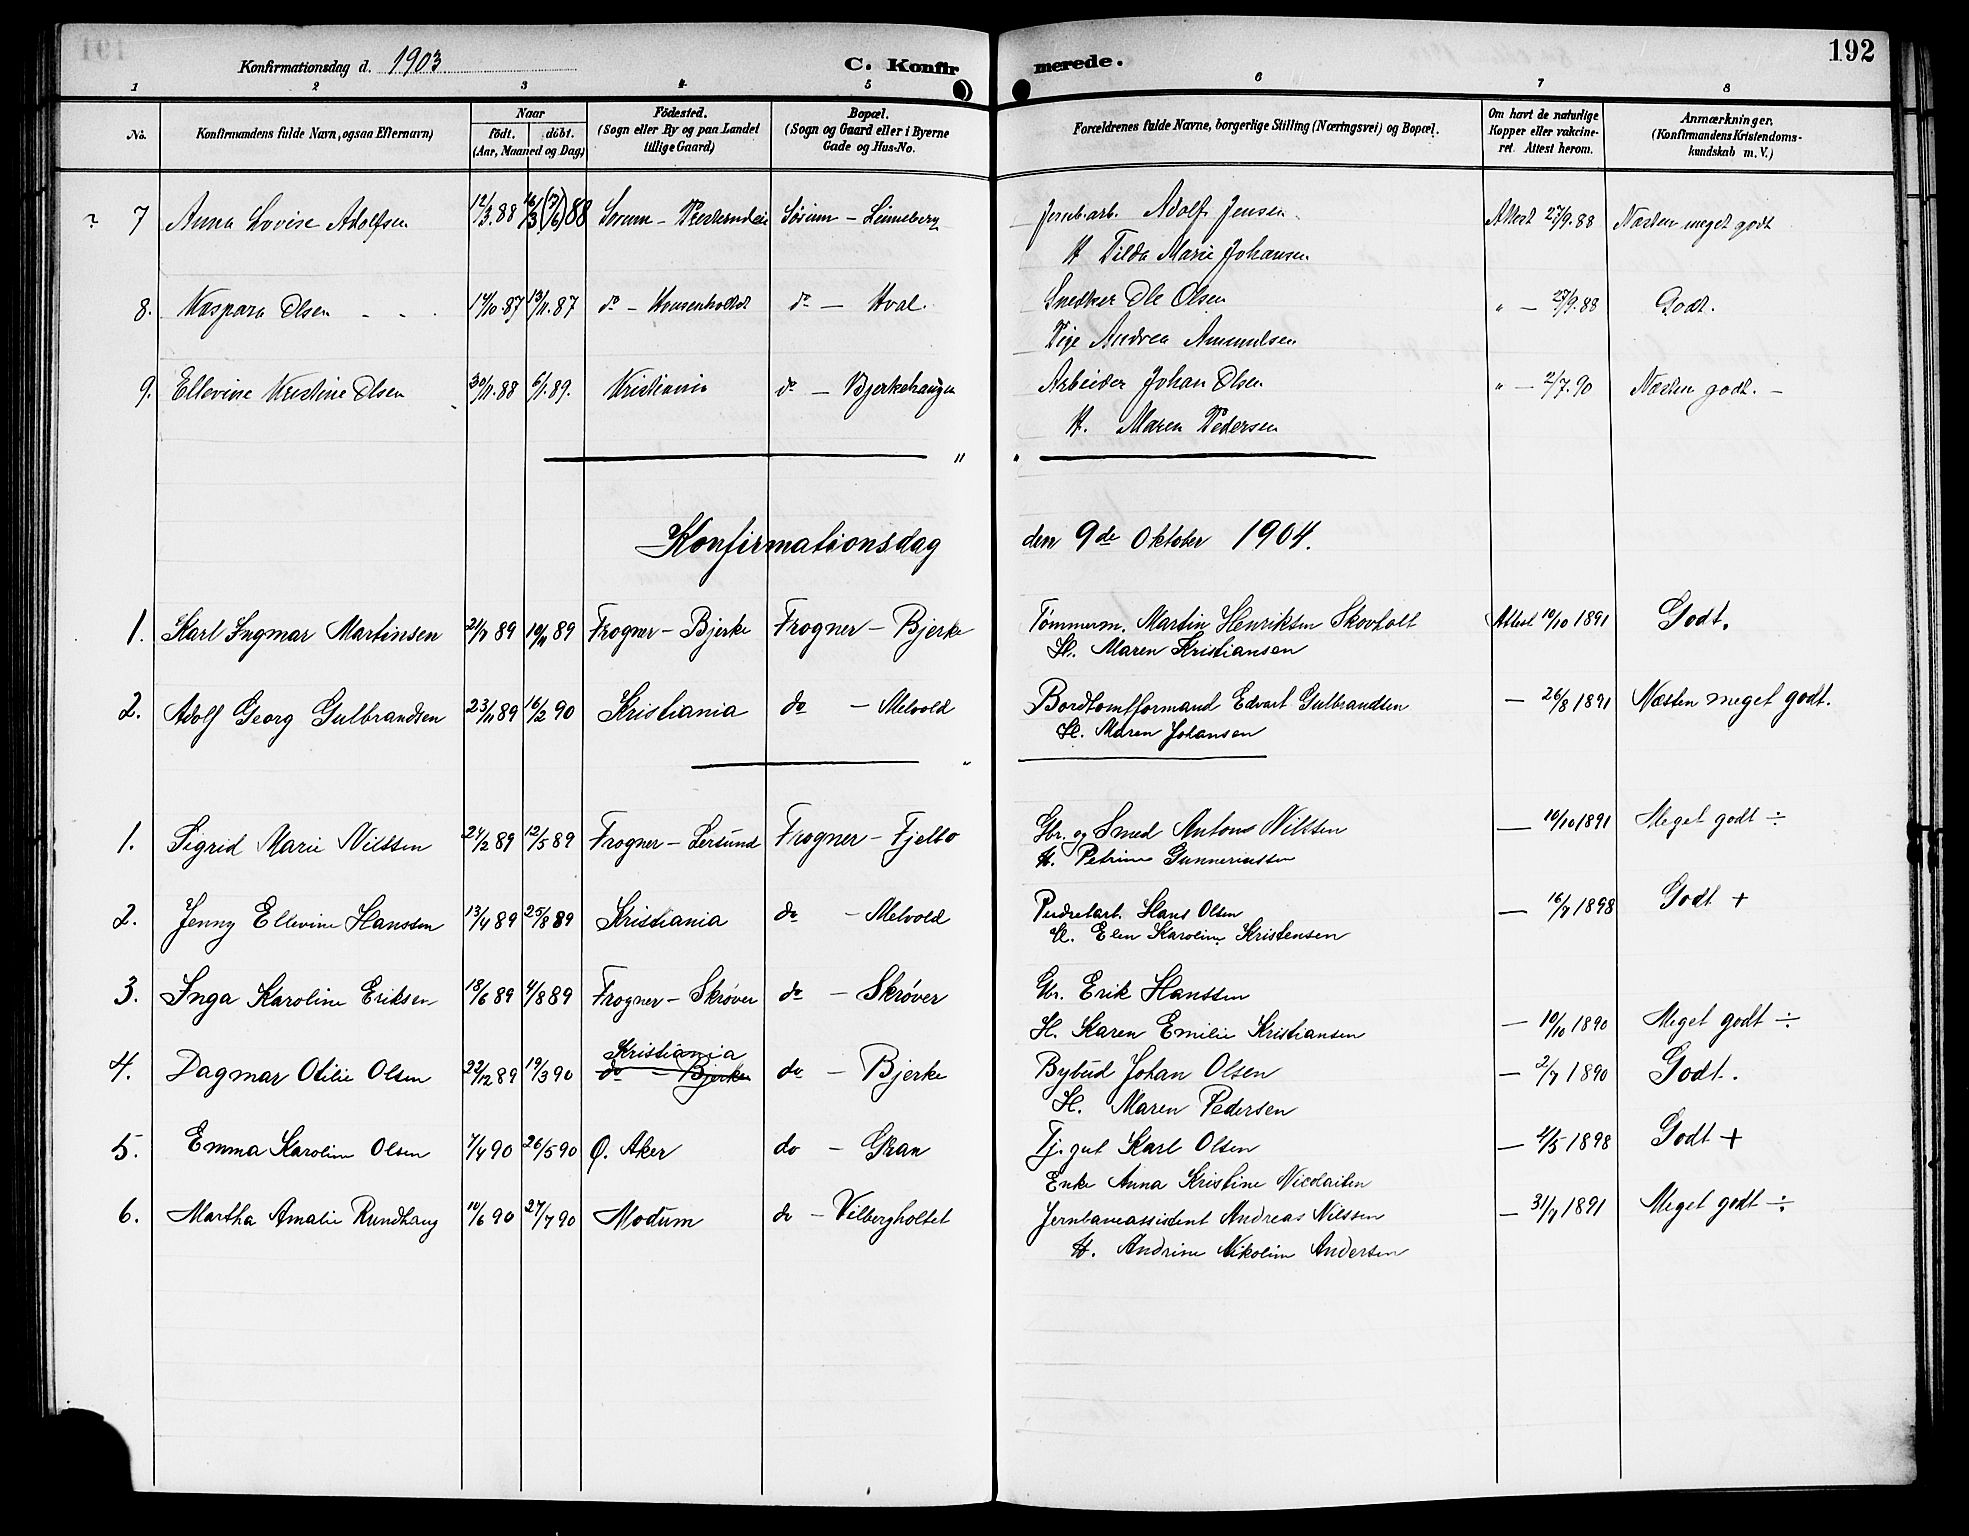 191
Konfirmationsdag d. 1903
C. Konfirmerede.
192
1 2 3 4 5 6 7 8
No. Konfirmandens fulde Navn, ogsaa Efternavn) Naar født. døbt. (Aar, Maaned og Dag) Fødested. (Sogn eller By og paa Landet tillige Gaard) Bopæl. (Sogn og Gaard eller i Byerne Gade og Hus-No. Forældrenes fulde Navne, borgerlige Stilling (Næringsvei) og Bopæl. Om havt de naturlige Kopper eller vakcineret. Attest herom. Anmærkninger. (Konfirmandens Kristendomskundskab m. V.)
? 7 Anna Lovise Adolfsen 12/3.88 16/3 (17/6) 88 Sørum – Sørum – Linneberg Jernb.arb. Adolf Jensen Attest 27/9.88 Næsten meget godt
H. Tilda Marie Johansen
8. Kaspara Olsen 14/10.87 13/11.87 do – do – Hval. Snedker Ole Olsen " – 27/9.88 Godt.
Pige Andrea Amundsen
9. Ellevine Kristine Olsen 30/11.88 6/1.89. Kristiania do – Bjerkehaugen Arbeider Johan Olsen " – 2/7.90 Næsten godt. –
H. Maren Pedersen
Konfirmationsdag den 9de Oktober 1904.
1. Karl Ingmar Martinsen 21/9 89 10/11 89 Frogner – Bjerke Frogner – Bjerke Tømmerm. Martin Henriksen Skovholt Attest 10/10 1891 Godt.
H. Maren Kristiansen
2. Adolf Georg Gulbrandsen 23/11 89 16/2 90 Kristiania do – Melvold Bordtomtformand Edvart Gulbrandsen – 26/8 1891 Næsten meget godt.
H. Maren Johansen
1. Sigrid Marie Nilssen 24/2 89 12/5 89 Frogner – Lersund Frogner – Fjelbo Gbr. og Smed Anton Nilssen – 10/10 1891 Meget godt ÷
H. Petrine Gunneriussen
2. Jenny Ellevine Hanssen 13/4 89 25/8 89 Kristiania do – Melvold Hans Olsen – 16/7 1898 Godt +
H. Elen Karoline Kristensen
3. Inga Karoline Eriksen 18/6 89 4/8 89 Frogner – Skrøver do – Skrøver Gbr. Erik Hanssen
H. Karen Emilie Kristiansen – 10/10 1890 Meget godt ÷
Kristiania
4. Dagmar Otilie Olsen 22/12 89 19/3 90 do – Bjerke do – Bjerke Bybud Johan Olsen – 2/7 1890 Godt.
H. Maren Pedersen
5. Emma Karoline Olsen 7/4 90 26/5 90 Ø. Aker do – Gran Tj.gut Karl Olsen – 4/5 1898 Godt +
Enke Anna Kristine Nicolaisen
6. Martha Amalie Rundhaug 10/6 90 27/7 90 Modum do – Vilbergholtet Jernbaneassistent Andreas Nilssen – 31/7 1891 Meget godt ÷
H. Andrine Nikoline Andersen